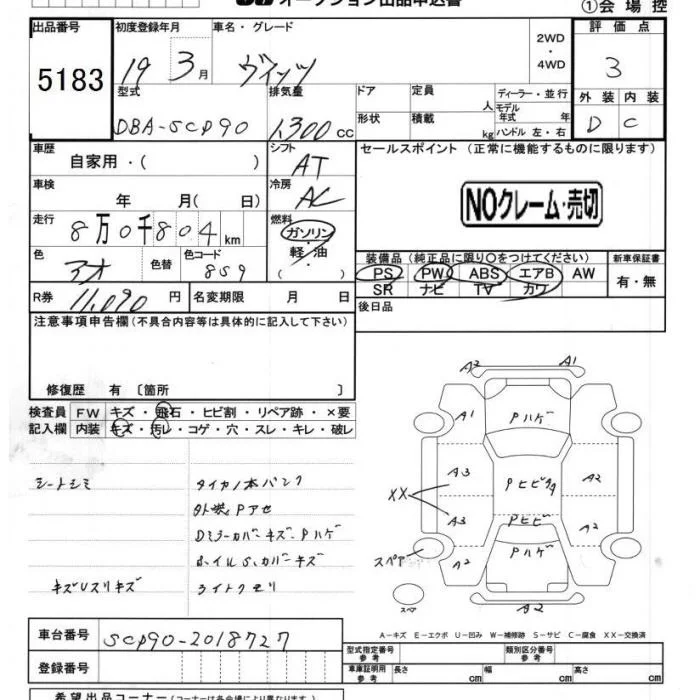 オークション出品申込書
①会場控
出品番号
5183
初度登録年月
19 3月
車名・グレード
ヴィッツ
2WD
・
4WD
評価点
3
型式
DBA-SCP90
排気量
1,300 CC
ドア
定員
人
形状
積載
kg
ディーラー・並行
モデル年式 年
ハンドル 左・右
外装 内装
D C
車歴
自家用・( )
シフト
AT
セールスポイント (正常に機能するものに限ります)
車検
年 月( 日)
冷房
AC
NOクレーム・売切
走行
8万0千804km
燃料
ガソリン
軽・油
色
アオ
色替
色コード
8S9
装備品 (純正品に限り○をつけてください)
新車保証書
PS PW ABS エアB AW
SR ナビ TV カワ
有・無
R券
11,090円
名変期限 月 日
後日品
注意事項申告欄 (不具合内容等は具体的に記入して下さい)
修復歴 有 〔箇所 〕
検査員
記入欄
FW キズ・飛石・ヒビ割・リペア跡・×要
内装 キズ・汚レ・コゲ・穴・スレ・キレ・破レ
シートシミ
タイヤ1本パンク
外装Pアセ
Dミラーカバーキズ・Pハゲ
ホイルS、カバーキズ
キズUスリキズ
ライトクモリ
A2 A1
A1 Pハゲ
A3 PヒビワA A2
XX
A3 Pヒビ
A2
Pハゲ
スペア A2
A2
スペア
A−キズ E−エクボ U−凹み W−補修跡 S−サビ C−腐食 XX−交換済
車台番号
SCP90-2018727
登録番号
型式指定番号
参考
類別区分番号
参考
車庫証明用
参考
長さ cm
幅 cm
高さ cm
希望出品コーナー